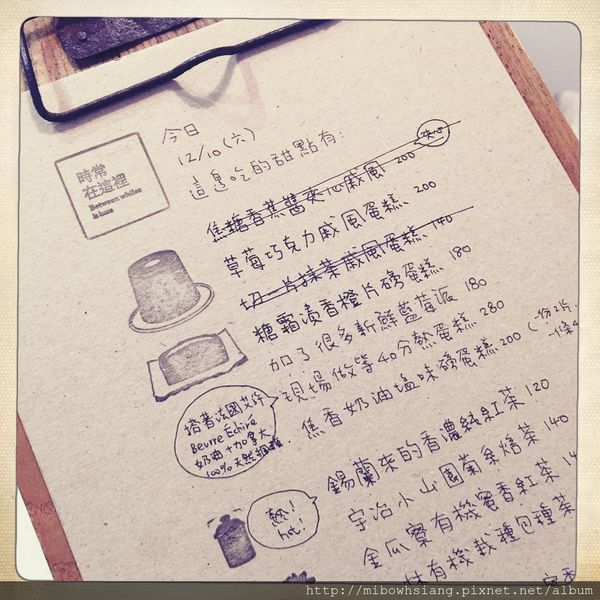 時常
在這裡
Between whiles
is here
今日
12/10(六)
這裡吃的甜點有:
焦糖香蕉醬夾心戚風 200
草莓巧克力戚風蛋糕、200
切一片抹茶戚風蛋糕、140
糖霜漬香橙片磅蛋糕 180
加了很多新鮮藍莓派 180
現場做等40分熱蛋糕 280
焦香奶油塩味磅蛋糕 200 (一份2片、
一條4
搭著法國艾許
Beurre Échiré
奶油+加拿大
100%天然楓糖
錫蘭來的香濃綾紅茶 120
宇治小山園菊系焙茶 140
熱!
hot!
金瓜寮有機蜜香紅茶 14
有機栽種包種茶
http://mibowhsiang.pixnet.net/album